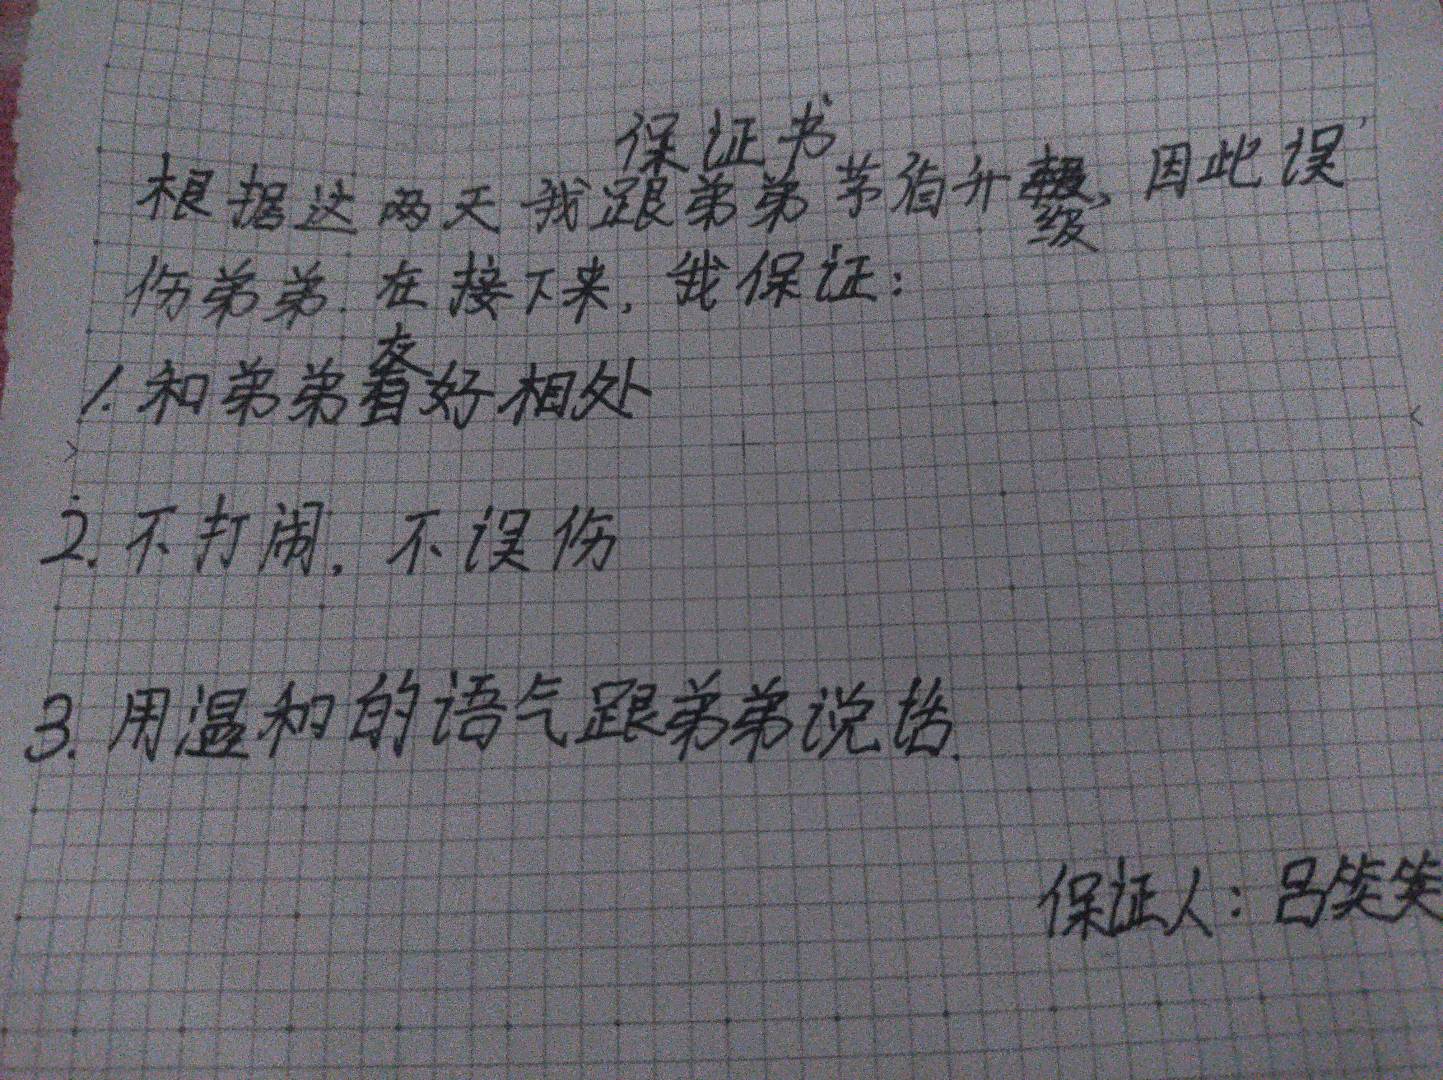 保证书
根据这两天我跟弟弟茅盾升级，因此误
伤弟弟.在接下来，我保证：
1.和弟弟友好相处
2.不打闹，不误伤
3.用温和的语气跟弟弟说话.
保证人：吕笑笑